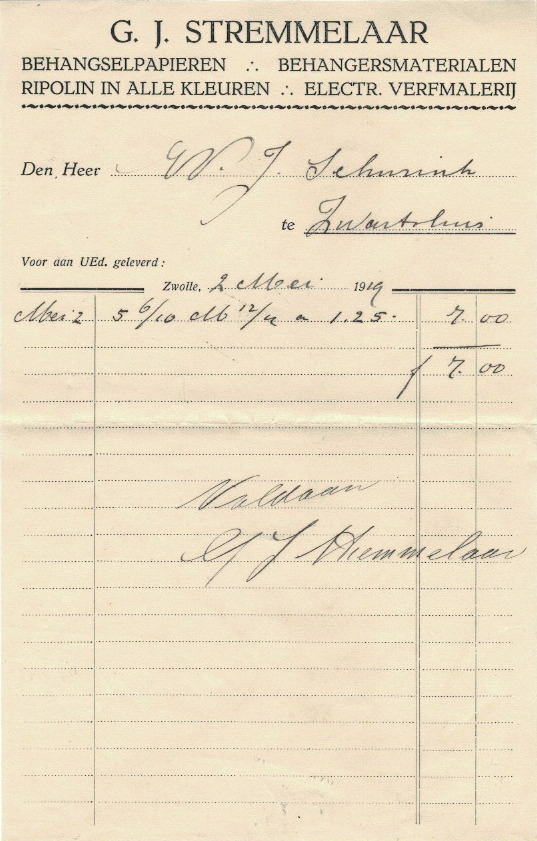 G. J. STREMMELAAR
BEHANGSELPAPIEREN ∴ BEHANGERSMATERIALEN
RIPOLIN IN ALLE KLEUREN ∴ ELECTR. VERFMALERIJ
Den Heer W. J. Schurink
te Zwartsluis
Voor aan UEd. geleverd:
Zwolle, 2 Mei 1919
Mei 2 5 6/10 M 12/4 a 1.25- 7.00
f 7.00
Voldaan
G J Stremmelaar